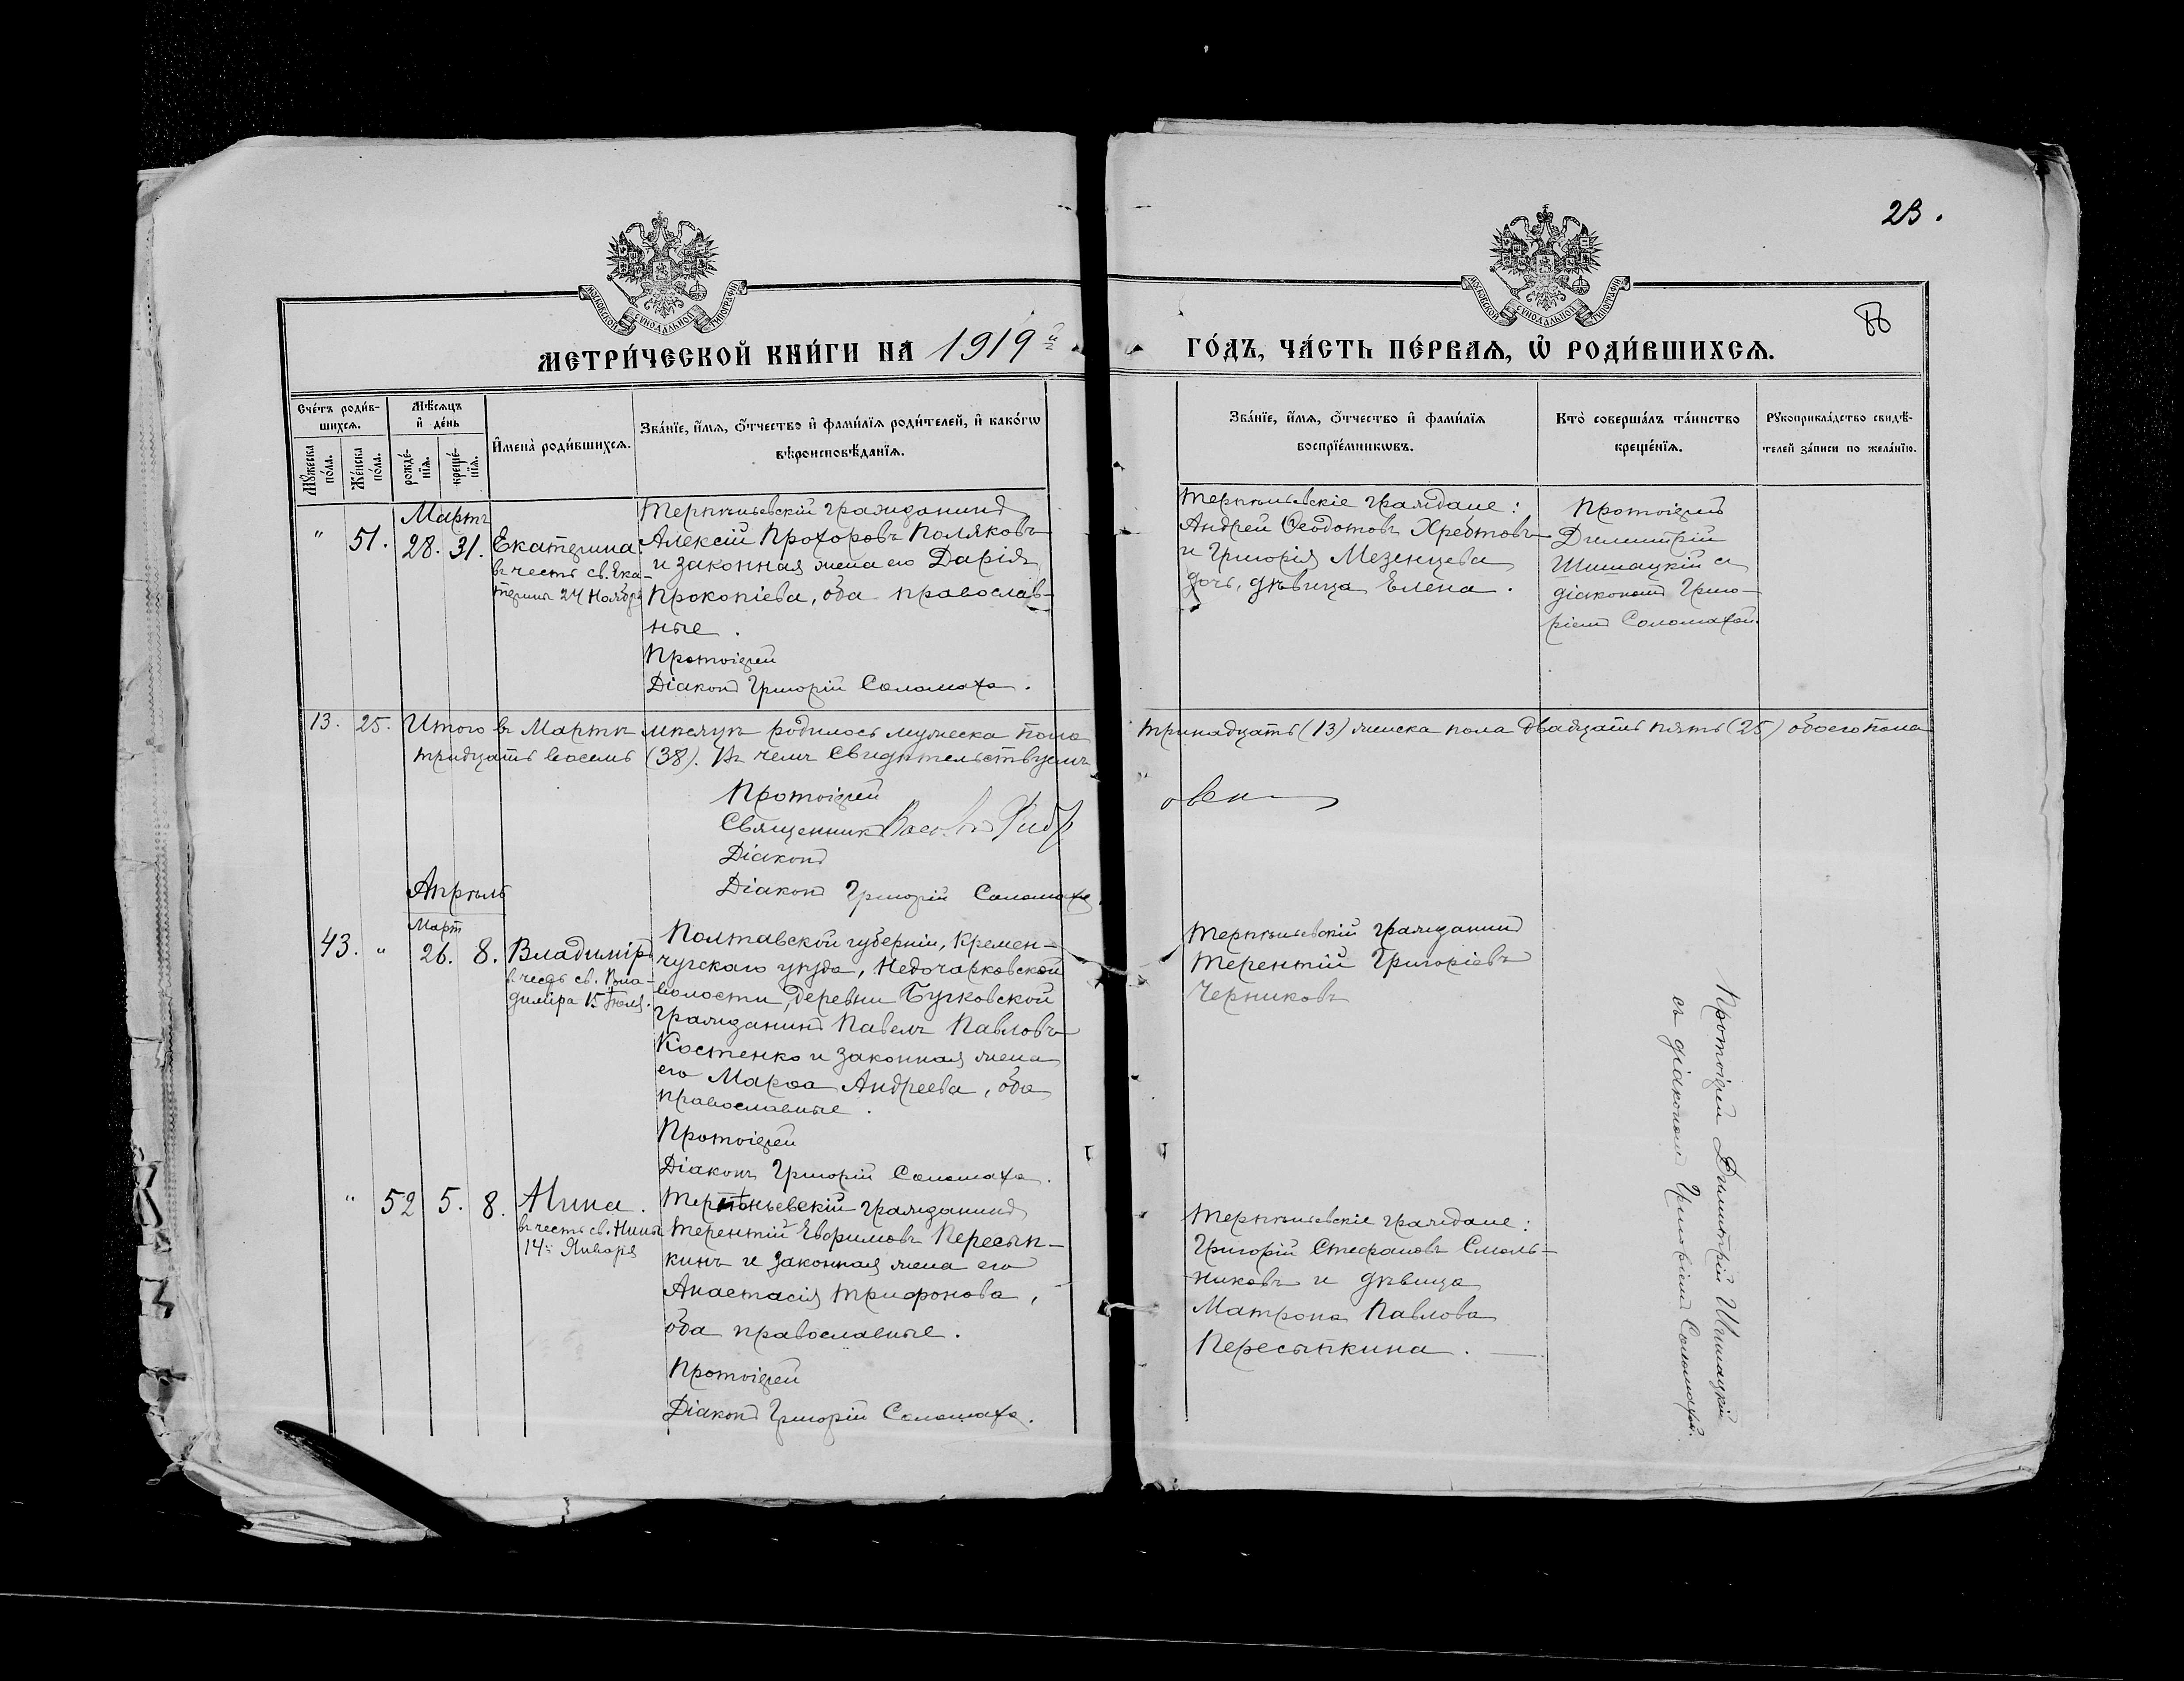 23.
88
МОСКОВСКОЙ СѴНОДАЛЬНОЙ ТИПОГРАФІИ
МОСКОВСКОЙ СѴНОДАЛЬНОЙ ТИПОГРАФІИ
МЕТРИ́ЧЕСКОЙ КНИ́ГИ НА 1919й
ГО́ДЪ, ЧА́СТЬ ПЕ́РВАѦ, Ѡ҆ РОДИ́ВШИХСѦ.
Сче́тъ роди́в-
шихсѧ.
Мꙋ́жеска по́ла.
Же́нска по́ла.
Мѣ́сѧцъ
и҆ де́нь
рожде́-
нїѧ.
креще́-
нїѧ.
И҆мена̀ роди́вшихсѧ.
Зва́нїе, и҆́мѧ, ѻ҆́тчество и҆ фами́лїѧ роди́телей, и҆ како́гѡ
вѣроисповѣ́данїѧ.
Зва́нїе, и҆́мѧ, ѻ҆́тчество и҆ фами́лїѧ
воспрїе́мникѡвъ.
Кто̀ соверша́лъ та́инство
креще́нїѧ.
Рꙋкоприкла́дство свидѣ́-
телей за́писи по жела́нїю.
" 51.
Мартъ
28. 31.
Екатерина.
въ честь св. Ека-
терины 24 Ноября
Терпѣньевскій гражданинъ
Алексій Прохоровъ Поляковъ
и законная жена его Дарія
Прокопіева, оба православ-
ные.
Протоіерей
Діаконъ Григорій Соломаха.
Терпѣньевскіе граждане:
Андрей Ѳеодотовъ Хребтовъ
и Григорія Мезенцева
дочь, дѣвица Елена.
Протоіерей
Димитрій
Шишацкій съ
діакономъ Григо-
ріемъ Соломахой.
13. 25. Итого въ Мартѣ мѣсяцѣ родилось мужеска пола тринадцать (13) женска пола двадцать пять (25) обоего пола
тридцать восемь (38). Въ чемъ свидѣтельствуемъ
Протоіерей
Священникъ
Діаконъ
Діаконъ Григорій Соломаха
Апрѣль
43. "
Март
26. 8.
Владиміръ
въ честь св. Вла-
диміра 15 Іюля.
Полтавской губерніи, Кремен-
чугскаго уѣзда, Недогарковской
волости, деревни Бугковской
гражданинъ Павелъ Павловъ
Костенко и законная жена
его Марѳа Андреева, оба
православные.
Протоіерей
Діаконъ Григорій Соломаха.
Терпѣньевскій гражданинъ
Терентій Григоріевъ
Черниковъ
Протоіерей Димитрій Шишацкій
съ діакономъ Григоріемъ Соломахой.
" 52 5. 8. Нина.
въ честь св. Нины
14го Января
Терпѣньевскій гражданинъ
Терентій Евфимовъ Пересып-
кинъ и законная жена его
Анастасія Трифонова,
оба православные.
Протоіерей
Діаконъ Григорій Соломаха.
Терпѣньевскіе граждане:
Григорій Стефановъ Смоль-
никовъ и дѣвица
Матрона Павлова
Пересыпкина.